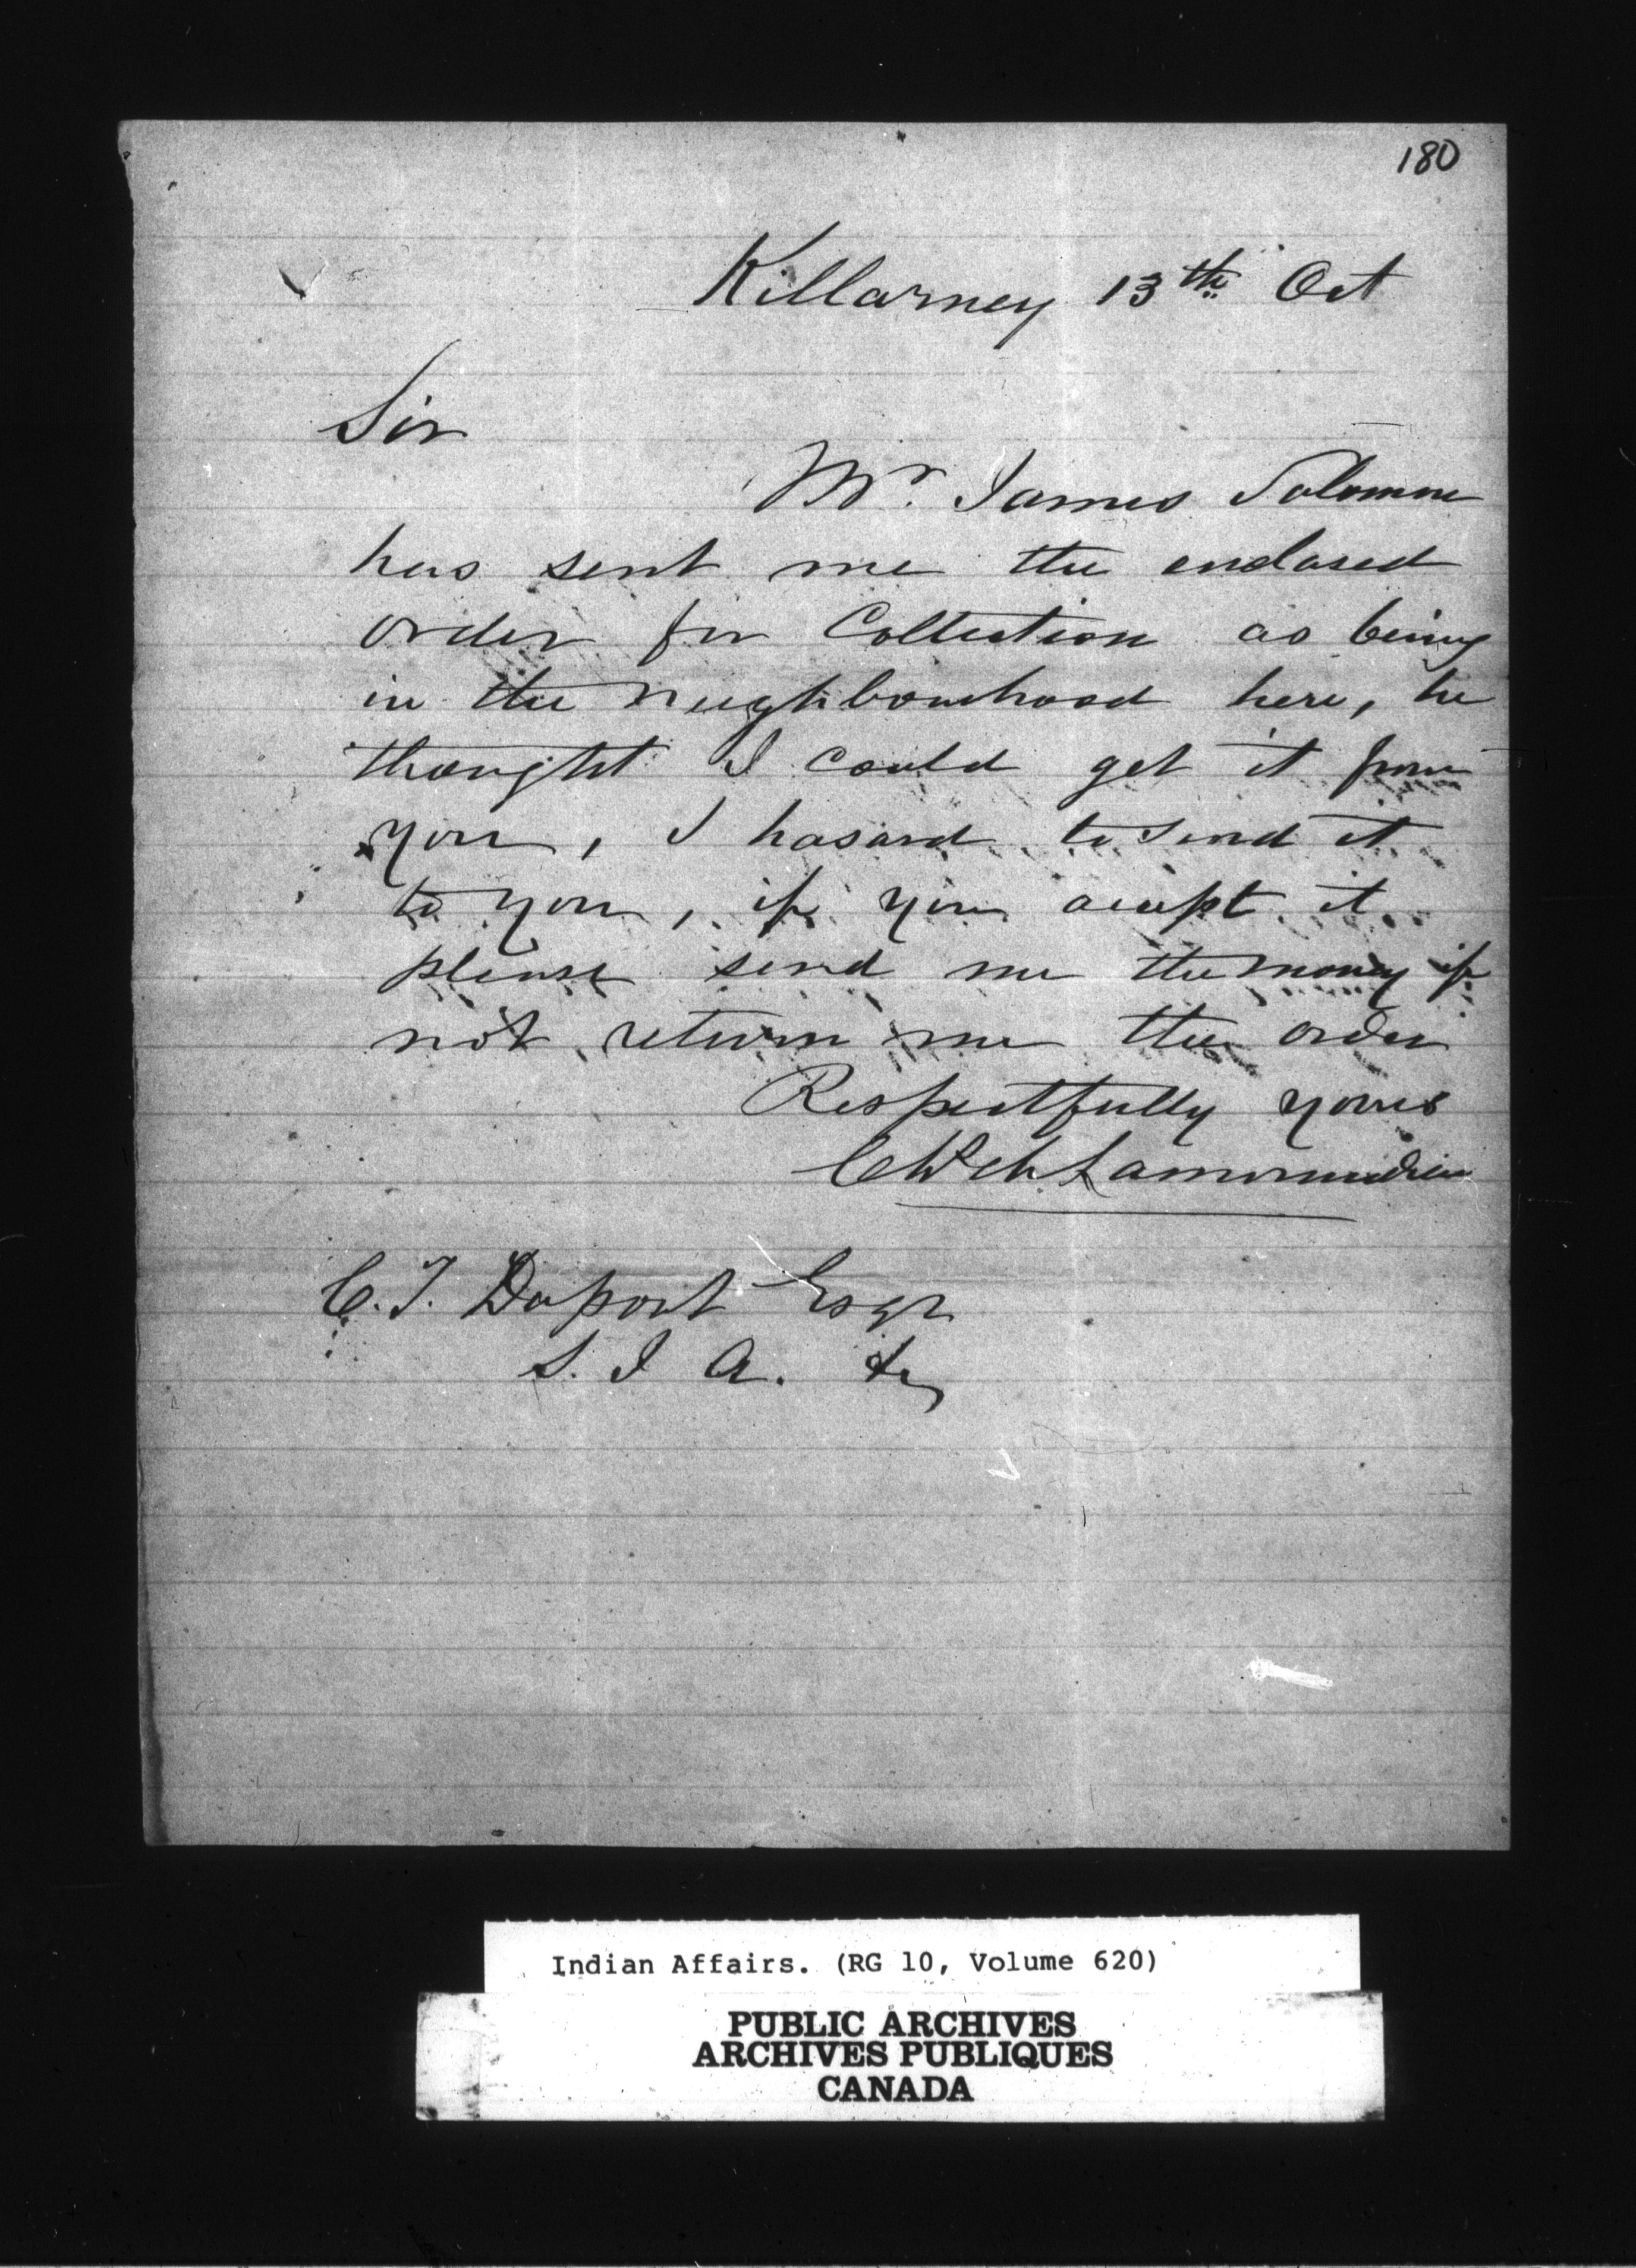 180
Killarney 13th Oct
Sir
Mr. James Solomon
has sent me the enclosed
order for Collection as being
in the neighbourhood here, he
thought I could get it from
you, I hasard to send it
to you, if you accept it
please send me the money if
not return me the order
Respectfully yours
Lamorandiere
C. T. Dupont Esqr
S. I A.
Indian Affairs. (RG 10, Volume 620)
PUBLIC ARCHIVES
ARCHIVES PUBLIQUES
CANADA